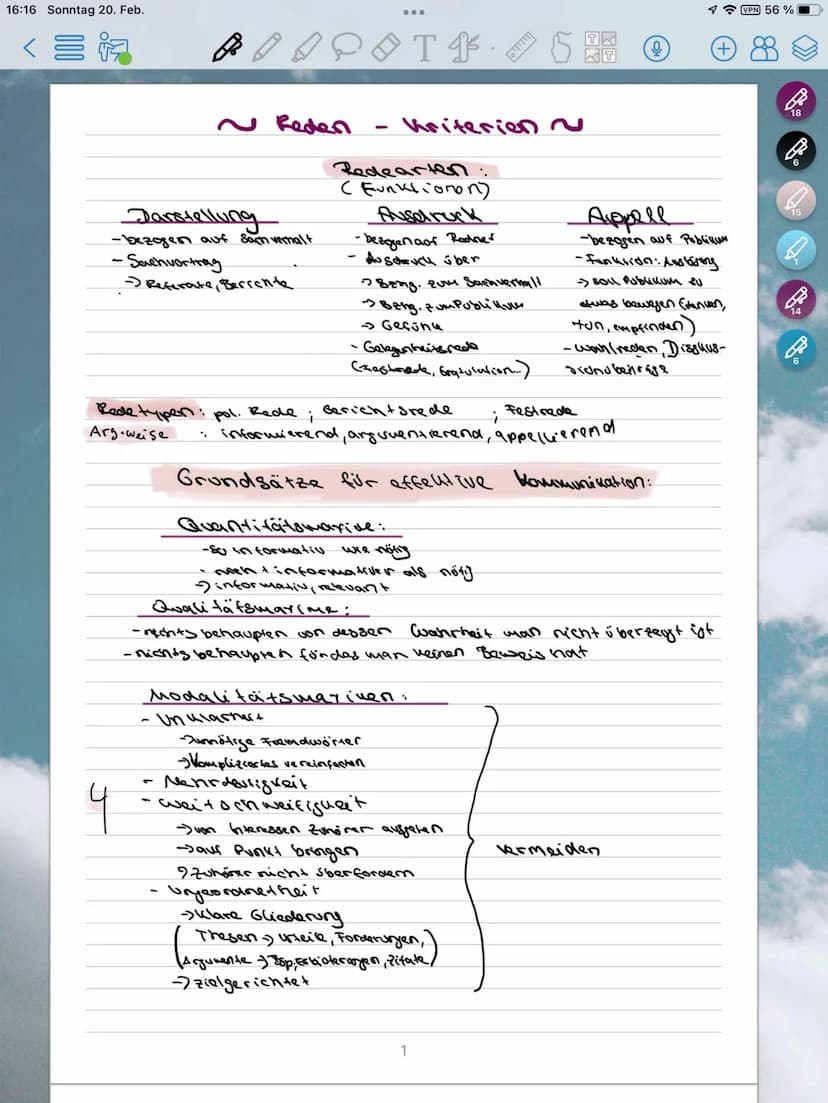 16:16 Sonntag 20. Feb.
VPN 56 %
18
6
15
1
14
6
~ Reden - Kriterien ~
Redearten:
(Funktionen)
Darstellung
- bezogen auf Sachverhalt
- Sachvortrag
-> Referate, Berichte
Ausdruck
- bezogen auf Redner
- Ausdruck über
-> Bzng. zum Sachverhalt
-> Bzng. zum Publikum
-> Gefühle
- Gelegenheitsrede
(Festrede, Gratulation...)
Appell
- bezogen auf Publikum
- Funktion: Auslösung
-> soll Publikum zu
etwas bewegen (
tun, empfinden)
- Wahlreden, Diskus-
sionsbeiträge
Redetypen: pol. Rede ; Gerichtsrede ; Festrede
Arg.weise : informierend, argumentierend, appellierend
Grundsätze für effektive Kommunikation:
Quantitätsmaxime:
- so informativ wie nötig
- nicht informativer als nötig
-> informativ, relevant
Qualitätsmaxime:
- nichts behaupten von dessen Wahrheit man nicht überzeugt ist
- nichts behaupten für das man keinen Beweis hat
Modalitätsmaximen:
- Unklarheit
-> unnötige Fremdwörter
-> Kompliziertes vereinfachen
- Mehrdeutigkeit
4
- Weitschweifigkeit
-> von Interessen Zuhörer ausgehen
-> auf Punkt bringen
-> Zuhörer nicht überfordern
vermeiden
- Ungeordnetheit
-> Klare Gliederung
(Thesen -> Urteile, Forderungen,
Argumente -> Bsp, Erläuterungen, Zitate)
-> zielgerichtet
1